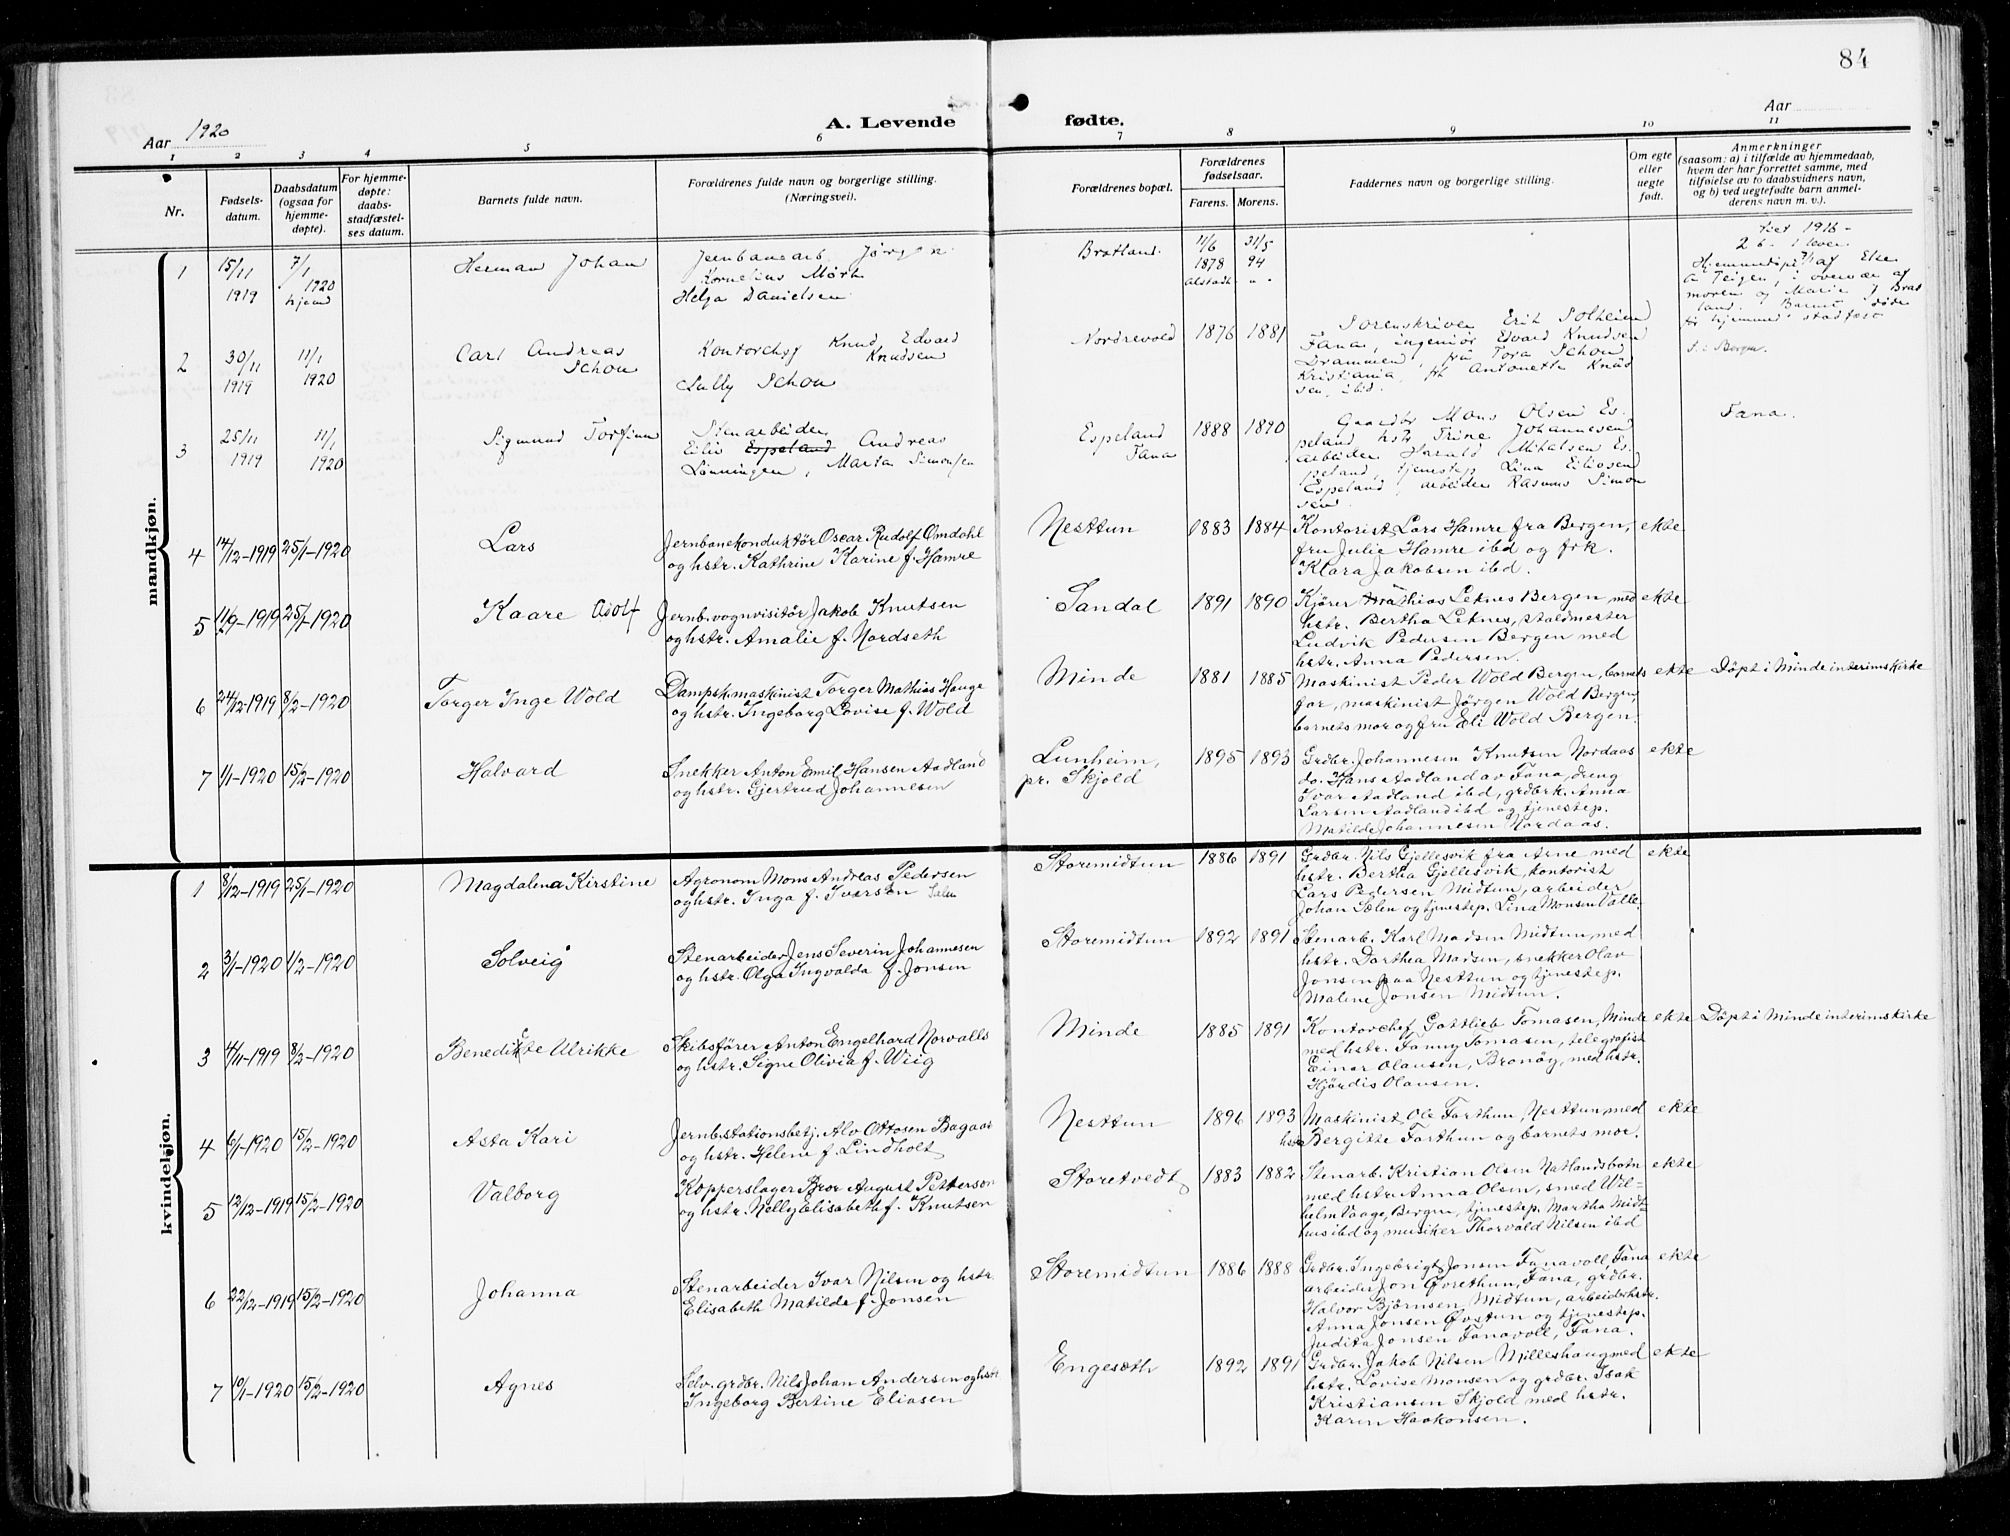 84
Aar 1920
A. Levende fødte.
Aar
1 2 3 4 5 6 7 8 9 10 11
Nr.
Fødsels-
datum.
Daabsdatum
(ogsaa for
hjemme-
døpte).
For hjemme-
døpte:
daabs-
stadfæstel-
ses datum.
Barnets fulde navn.
Forældrenes fulde navn og borgerlige stilling.
(Næringsvei).
Forældrenes bopæl.
Forældrenes
fødselsaar.
Farens. Morens.
Faddernes navn og borgerlige stilling.
Om egte
eller
uegte
født.
Anmerkninger
(saasom: a) i tilfælde av hjemmedaab,
hvem der har forrettet samme, med
tilføielse av to daabsvidners navn,
og b) ved uegtefødte barn anmel-
derens navn m. v.).
mandkjøn.
1
15/11
1919
7/1
1920
hjem
Herman Johan
Jernbanearb. Jørgen
Kornelius Mørk
Helga Danielsen
Bratland
11/6
1878
Alstadh.
31/5
94
1916 -
2 b. 1 lever
Hjemmedøpt af Else
Teigen, i overvær af
moren og Marie Brat
land. Barnet døde
før hjemmed. stadfæst
2
30/11
1919
11/1
1920
Carl Andreas
Schou
Kontorchef Knud Edvard
Knudsen
Lully Schou
Nordrevold
1876 1881
Sorenskriver Erik Solheim
Fana, ingeniør Edvard Knudsen
Drammen, fru Tora Schou
Kristiania, frk Antonette Knud
sen, ibid.
f. i Bergen.
3
25/11
1919
11/1
1920
Sigmund Torfinn
Stenarbeider
Eiliv Espeland Andreas
Lønningen, Marta Simonsen
Espeland
Fana
1888 1890
Gaardbr Mons Olsen Es-
peland hstr Trine Johannesen
arbeider Harald Mikalsen Es-
peland, tjenestep Lina Eilivsen
Espeland, arbeider Rasmus Simon
sen
Fana.
4 14/12-1919 25/1-1920
Lars
Jernbanekonduktør Oscar Rudolf Omdahl
og hstr. Kathrine Karine f. Hamre
Nesttun
1883 1884
Kontorist Lars Hamre fra Bergen,
fru Julie Hamre ibd og frk.
Klara Jakobsen ibd.
ekte
5 11/9-1919 25/1-1920
Kaare Adolf
Jernb.vognvisitør Jakob Knutsen
og hstr. Amalie f. Nordseth
Sandal
1891 1890
Kjører Mathias Leknes Bergen, med
hstr. Bertha Leknes, staldmester
Ludvik Pedersen Bergen med
hstr. Anna Pedersen.
ekte
6 24/12-1919 8/2-1920
Torger Inge Wold
Dampsk.maskinist Torger Mathias Hauge
og hstr. Ingeborg Lovise f. Wold
Minde
1881 1885
Maskinist Peder Wold Bergen, barnets
far, maskinist Jørgen Wold Bergen,
barnets mor og fru Eli Wold Bergen.
ekte
Døpt i Minde interimskirke
7 1/1-1920 15/2-1920
Halvard
Snekker Anton Emil Hansen Aadland
og hstr. Gjertrud Johannesen
Lunheim,
pr. Skjold
1895 1893
Grdbr. Johannesen Knutsen Nordaas
do. Hans Aadland av Fana, dreng
Ivar Aadland ibd, grdbrk. Anna
Larsen Aadland ibd og tjenestep.
Matilde Johannesen Nordaas.
ekte
kvindekjøn.
1 8/12-1919 25/1-1920
Magdalena Kirstine
Agronom Mons Andreas Pedersen
og hstr. Inga f. Iversen Sælen
Storemidtun
1886 1891
Grdbr. Nils Gjellesvik fra Arne med
hstr. Bertha Gjellesvik, kontorist
Lars Pedersen Midtun, arbeider
Johan Sælen og tjenestep. Lina Monsen Valle.
ekte
2 3/1-1920 1/2-1920
Solveig
Stenarbeider Jens Severin Johannesen
og hstr. Olga Ingvalda f. Jonsen
Storemidtun
1892 1891
Stenarb. Karl Madsen Midtun, med
hstr. Dorthea Madsen, snekker Olav
Jonsen paa Nesttun og tjenestep.
Malene Jonsen Midtun.
3 4/11-1919 8/2-1920
Benedikte Ulrikke
Skibsfører Anton Engelhard Norvalls
og hstr. Signe Olivia f. Wiig
Minde
1885 1891
Kontorchef Gottlieb Tomasen, Minde
med hstr. Fanny Tomasen, telegrafist
Einar Olausen, Brønøy, med hstr.
Hjørdis Olausen.
ekte
Døpt i Minde interimskirke
4 6/1-1920 15/2-1920
Asta Kari
Jernb.stationsbetj. Alv Ottosen Bagaas
og hstr. Helene f. Lindholt
Nesttun
1896 1893
Maskinist Ole Forthun, Nesttun med
hstr Bergitte Forthun og barnets mor.
ekte
5 12/12-1919 15/2-1920
Valborg
Kopperslager Bror August Petterson
og hstr. Nelly Elisabeth f. Knutsen
Storetvedt
1883 1882
Stenarb. Kristian Olsen Natlandsbotn
med hstr. Anna Olsen, smed Wil-
helm Vaage, Bergen, tjenestep. Martha Midt-
hus ibd og musiker Thorvald Nilsen ibd
ekte
6 22/12-1919 15/2-1920
Johanna
Stenarbeider Ivar Nilsen og hstr
Elisabeth Matilde f. Jonsen
Storemidtun
1886 1888
Grdbr. Ingebrigt Jonsen Fanavoll, Fana
arbeider Jon Øvrethun, Fana, grdbr.
Halvor Bjørnsen, Midtun, arbeiderhstr.
Anna Jonsen Øvstun og tjenestep.
Judita Jonsen Fanavoll, Fana.
ekte
7 10/1-1920 15/2-1920
Agnes
Selv. grdbr. Nils Johan Andersen og hstr
Ingeborg Bertine Eliasen
Engesæth
1892 1891
Grdbr. Jakob Nilsen Milleshaug med
hstr. Lovise Monsen og grdbr. Isak
Kristiansen Skjold med hstr.
Karen Haakonsen.
ekte